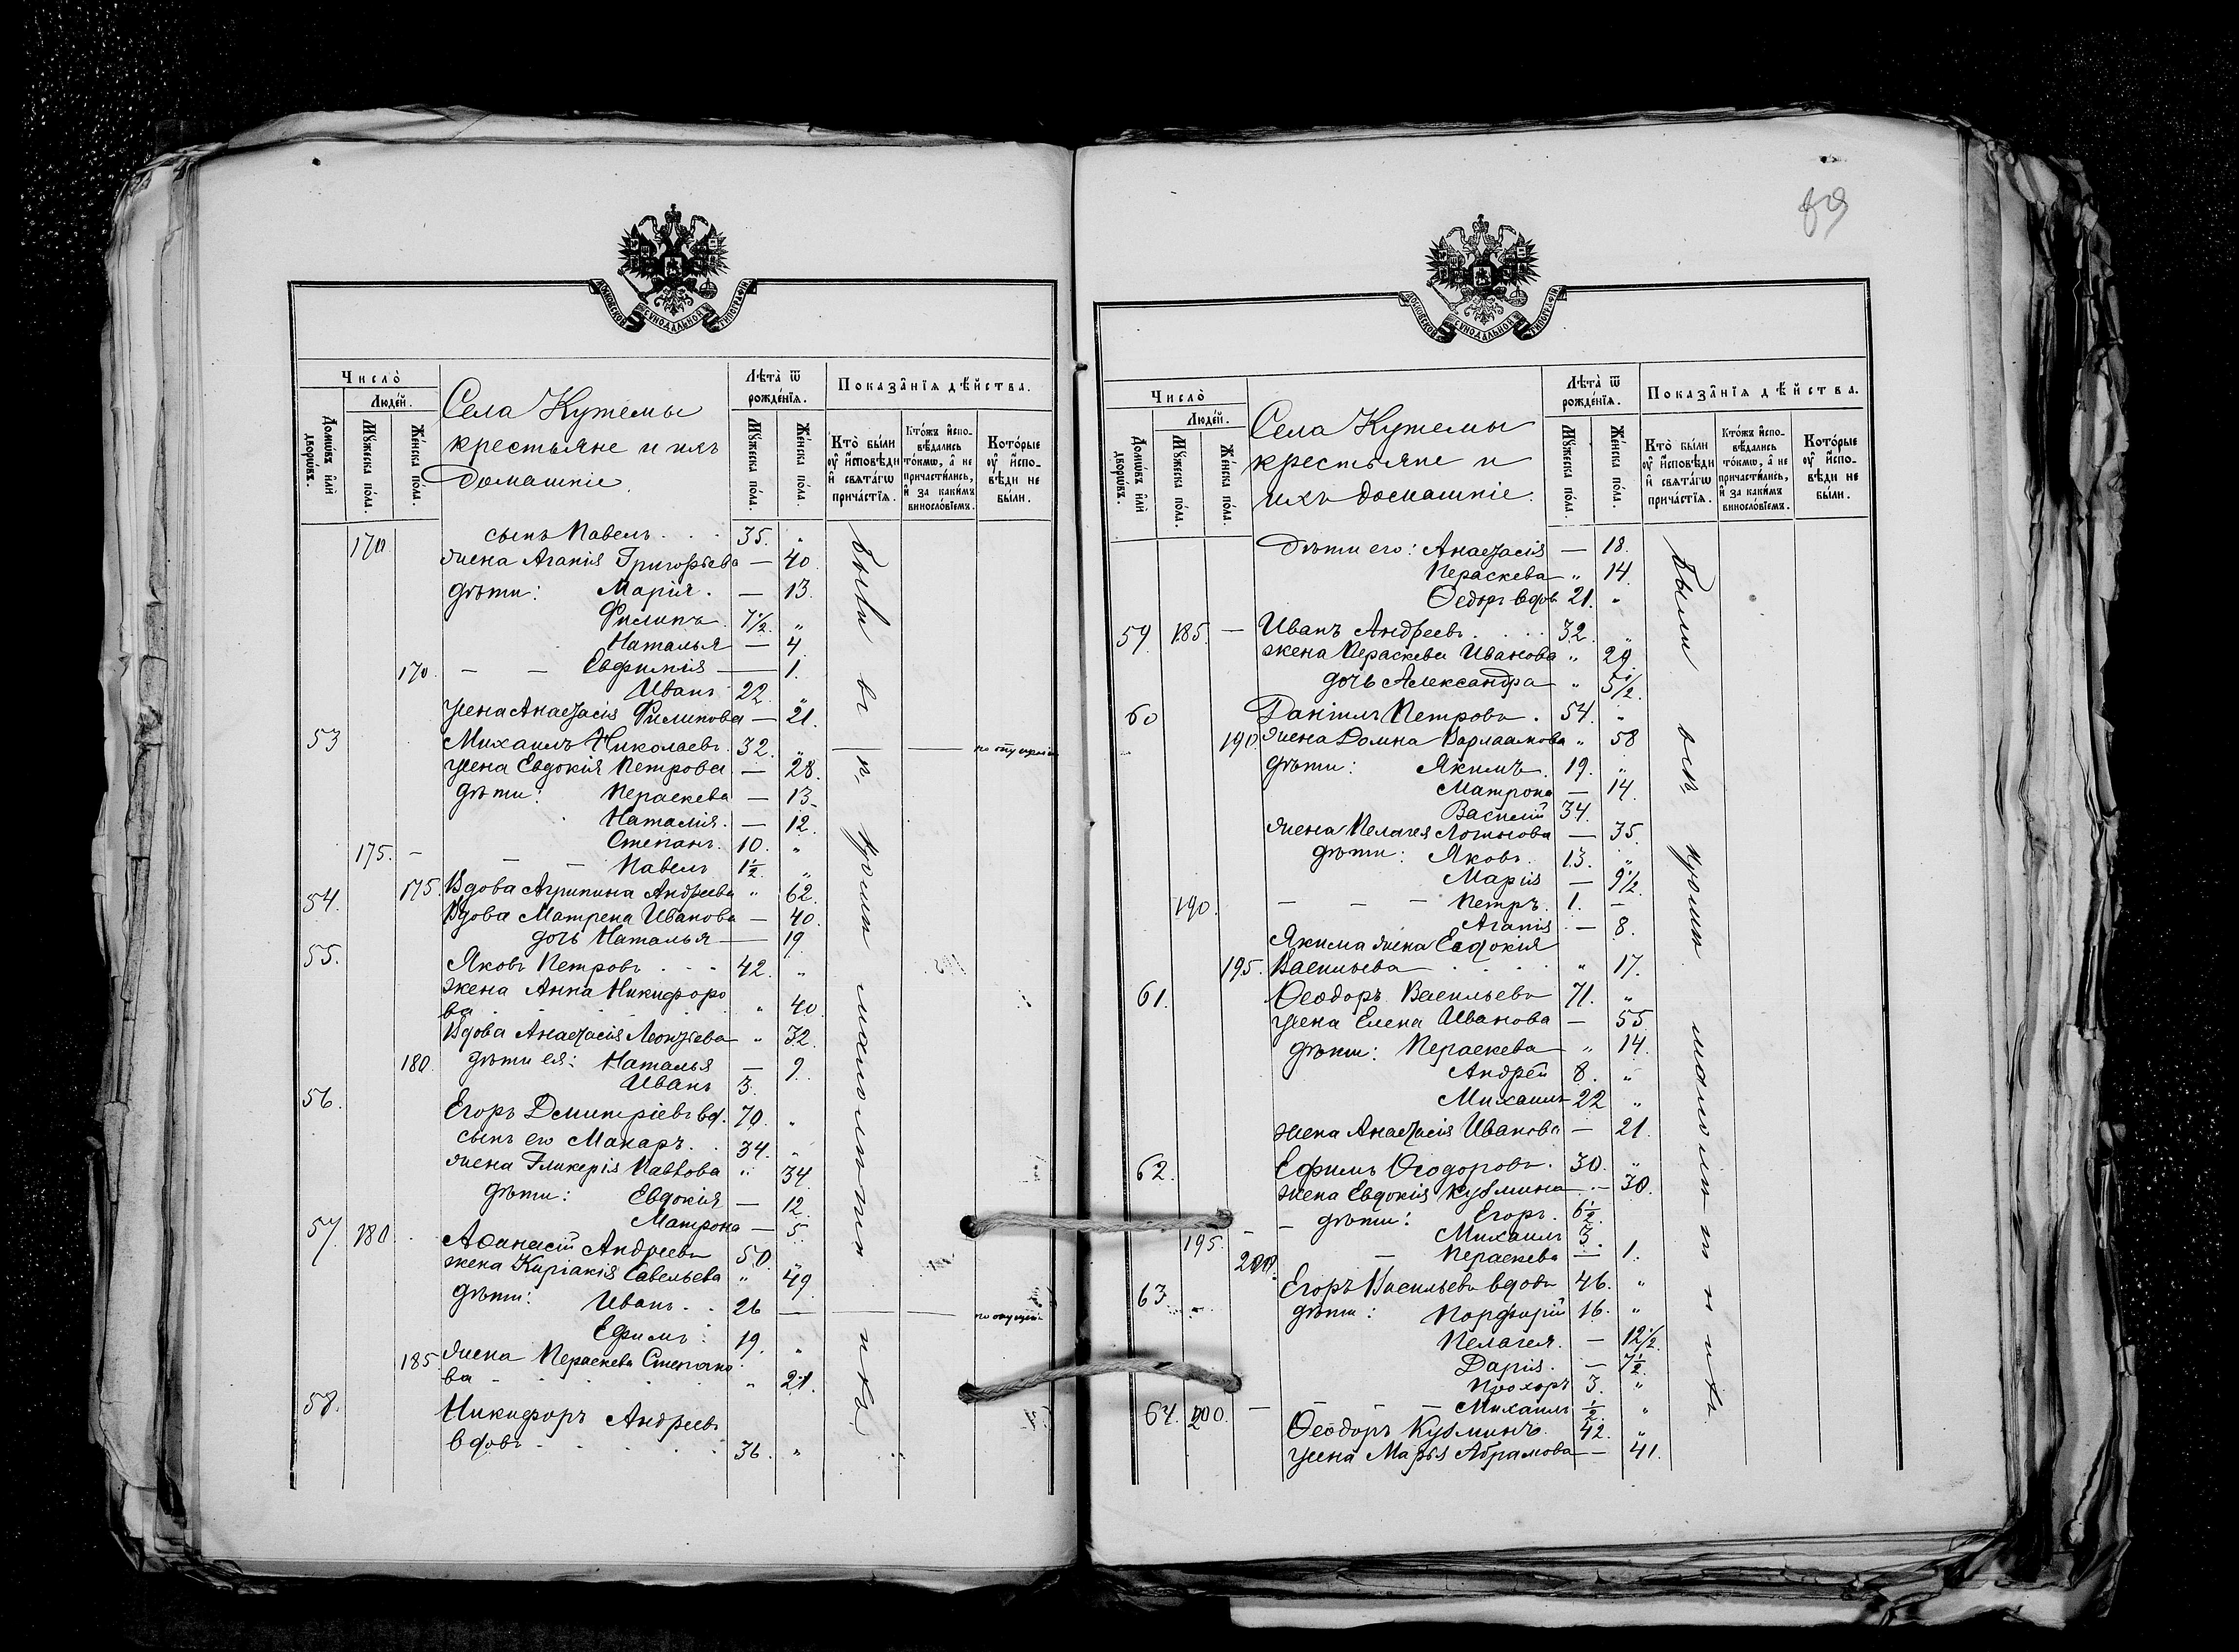 МОСКОВСКОЙ СѴНОДАЛЬНОЙ ТИПОГРАФІИ
Число̀
Люде́й.
Домѡ́въ и҆лѝ дворѡ́въ.
Мꙋ́жеска по́ла.
Же́нска по́ла.
Села Кутемы
крестьяне и ихъ
домашніе.
Лѣ́та ѿ рожде́нїѧ.
Мꙋ́жеска по́ла.
Же́нска по́ла.
Показа̑нїѧ дѣ́йства.
Кто̀ бы́ли ᲂу҆ и҆сповѣ́ди и҆ свѧта́гѡ прича́стїѧ.
Кто́жъ и҆сповѣ́дались то́кмѡ, а҆ не причасти́лись, и҆ за каки́мъ виносло́вїемъ.
Кото́рые ᲂу҆ и҆сповѣ́ди не бы́ли.
170 сынъ Павелъ . . . 35. "
жена Агапія Григорьева — 40
дѣти: Марія . — 13.
Филипъ . 7½. "
Наталья — 4.
170. — — Евфимія — 1.
Иванъ 22. "
жена Анастасія Филипова — 21.
53 Михаилъ Николаевъ 32. " — — по опущенію
жена Евдокія Петрова — 28.
дѣти: Параскева — 13.
Наталія . — 12.
Степанъ . 10. "
175. — — — Павелъ 1½. "
54. 175. Вдова Агрипина Андреева " 62.
Вдова Матрена Иванова — 40.
дочь Наталья — 19.
55. Яковъ Петровъ . . . 42. "
жена Анна Никифоро
ва . . . . . " 40.
Вдова Анастасія Леонтьева " 32.
180. дѣти ея: Наталья — 9.
Иванъ 3.
56. Егоръ Димитріевъ вд. 70. "
сынъ его Макаръ . . 34. "
жена Гликерія Павлова " 34
дѣти: Евдокія — 12.
Матрона — 5.
57. 180. Аѳанасій Андреевъ 50. "
жена Киріакія Савельева " 49.
дѣти: Иванъ . . 26 — — — по опущенію
Ефимъ . 19. "
185. жена Параскева Степано
ва — . . . . " 21.
58. Никифоръ Андреевъ
вдовъ . . . . . 36. "
Были всѣ кромѣ малолѣтнихъ.
89
МОСКОВСКОЙ СѴНОДАЛЬНОЙ ТИПОГРАФІИ
Число̀
Люде́й.
Домѡ́въ и҆лѝ дворѡ́въ.
Мꙋ́жеска по́ла.
Же́нска по́ла.
Села Кутемы
крестьяне и
ихъ домашніе.
Лѣ́та ѿ рожде́нїѧ.
Мꙋ́жеска по́ла.
Же́нска по́ла.
Показа̑нїѧ дѣ́йства.
Кто̀ бы́ли ᲂу҆ и҆сповѣ́ди и҆ свѧта́гѡ прича́стїѧ.
Кто́жъ и҆сповѣ́дались то́кмѡ, а҆ не причасти́лись, и҆ за каки́мъ виносло́вїемъ.
Кото́рые ᲂу҆ и҆сповѣ́ди не бы́ли.
дѣти его: Анастасія — 18.
Параскева " 14.
Ѳедоръ вдов. 21. "
59. 185. — Иванъ Андреевъ . . . . 32. "
жена Параскева Иванова " 29.
дочь Александра " 5½.
60 Даніилъ Петровъ . 54. "
190. жена Домна Варлаамова " 58
дѣти: Якимъ . 19. "
Матрона — 14.
Василій 34.
жена Пелагея Логинова — 35.
дѣти: Яковъ . 13. "
Марія — 9½.
190. — — — Петръ . 1. —
Агапія . — 8.
Якима жена Евдокія
195. Васильева . . . . " 17.
61. Ѳеодоръ Васильевъ 71. "
жена Елена Иванова — 55
дѣти: Параскева " 14.
Андрей 8. "
Михаилъ 22 "
жена Анастасія Иванова — 21.
62. Ефимъ Ѳеодоровъ . 30. "
жена Евдокія Кузмина — 30.
— дѣти: Егоръ . 6½.
195. — Михаилъ 3.
200. — Параскева — 1.
63. Егоръ Васильевъ вдовъ 46. "
дѣти: Порфирій 16. "
Пелагея . — 12½.
Дарія . — 7½.
Прохоръ 3. "
200. — — — Михаилъ ½. "
64. Ѳеодоръ Кузминъ . 42. "
жена Марья Абрамова — 41.
Были всѣ кромѣ малолѣтнихъ.